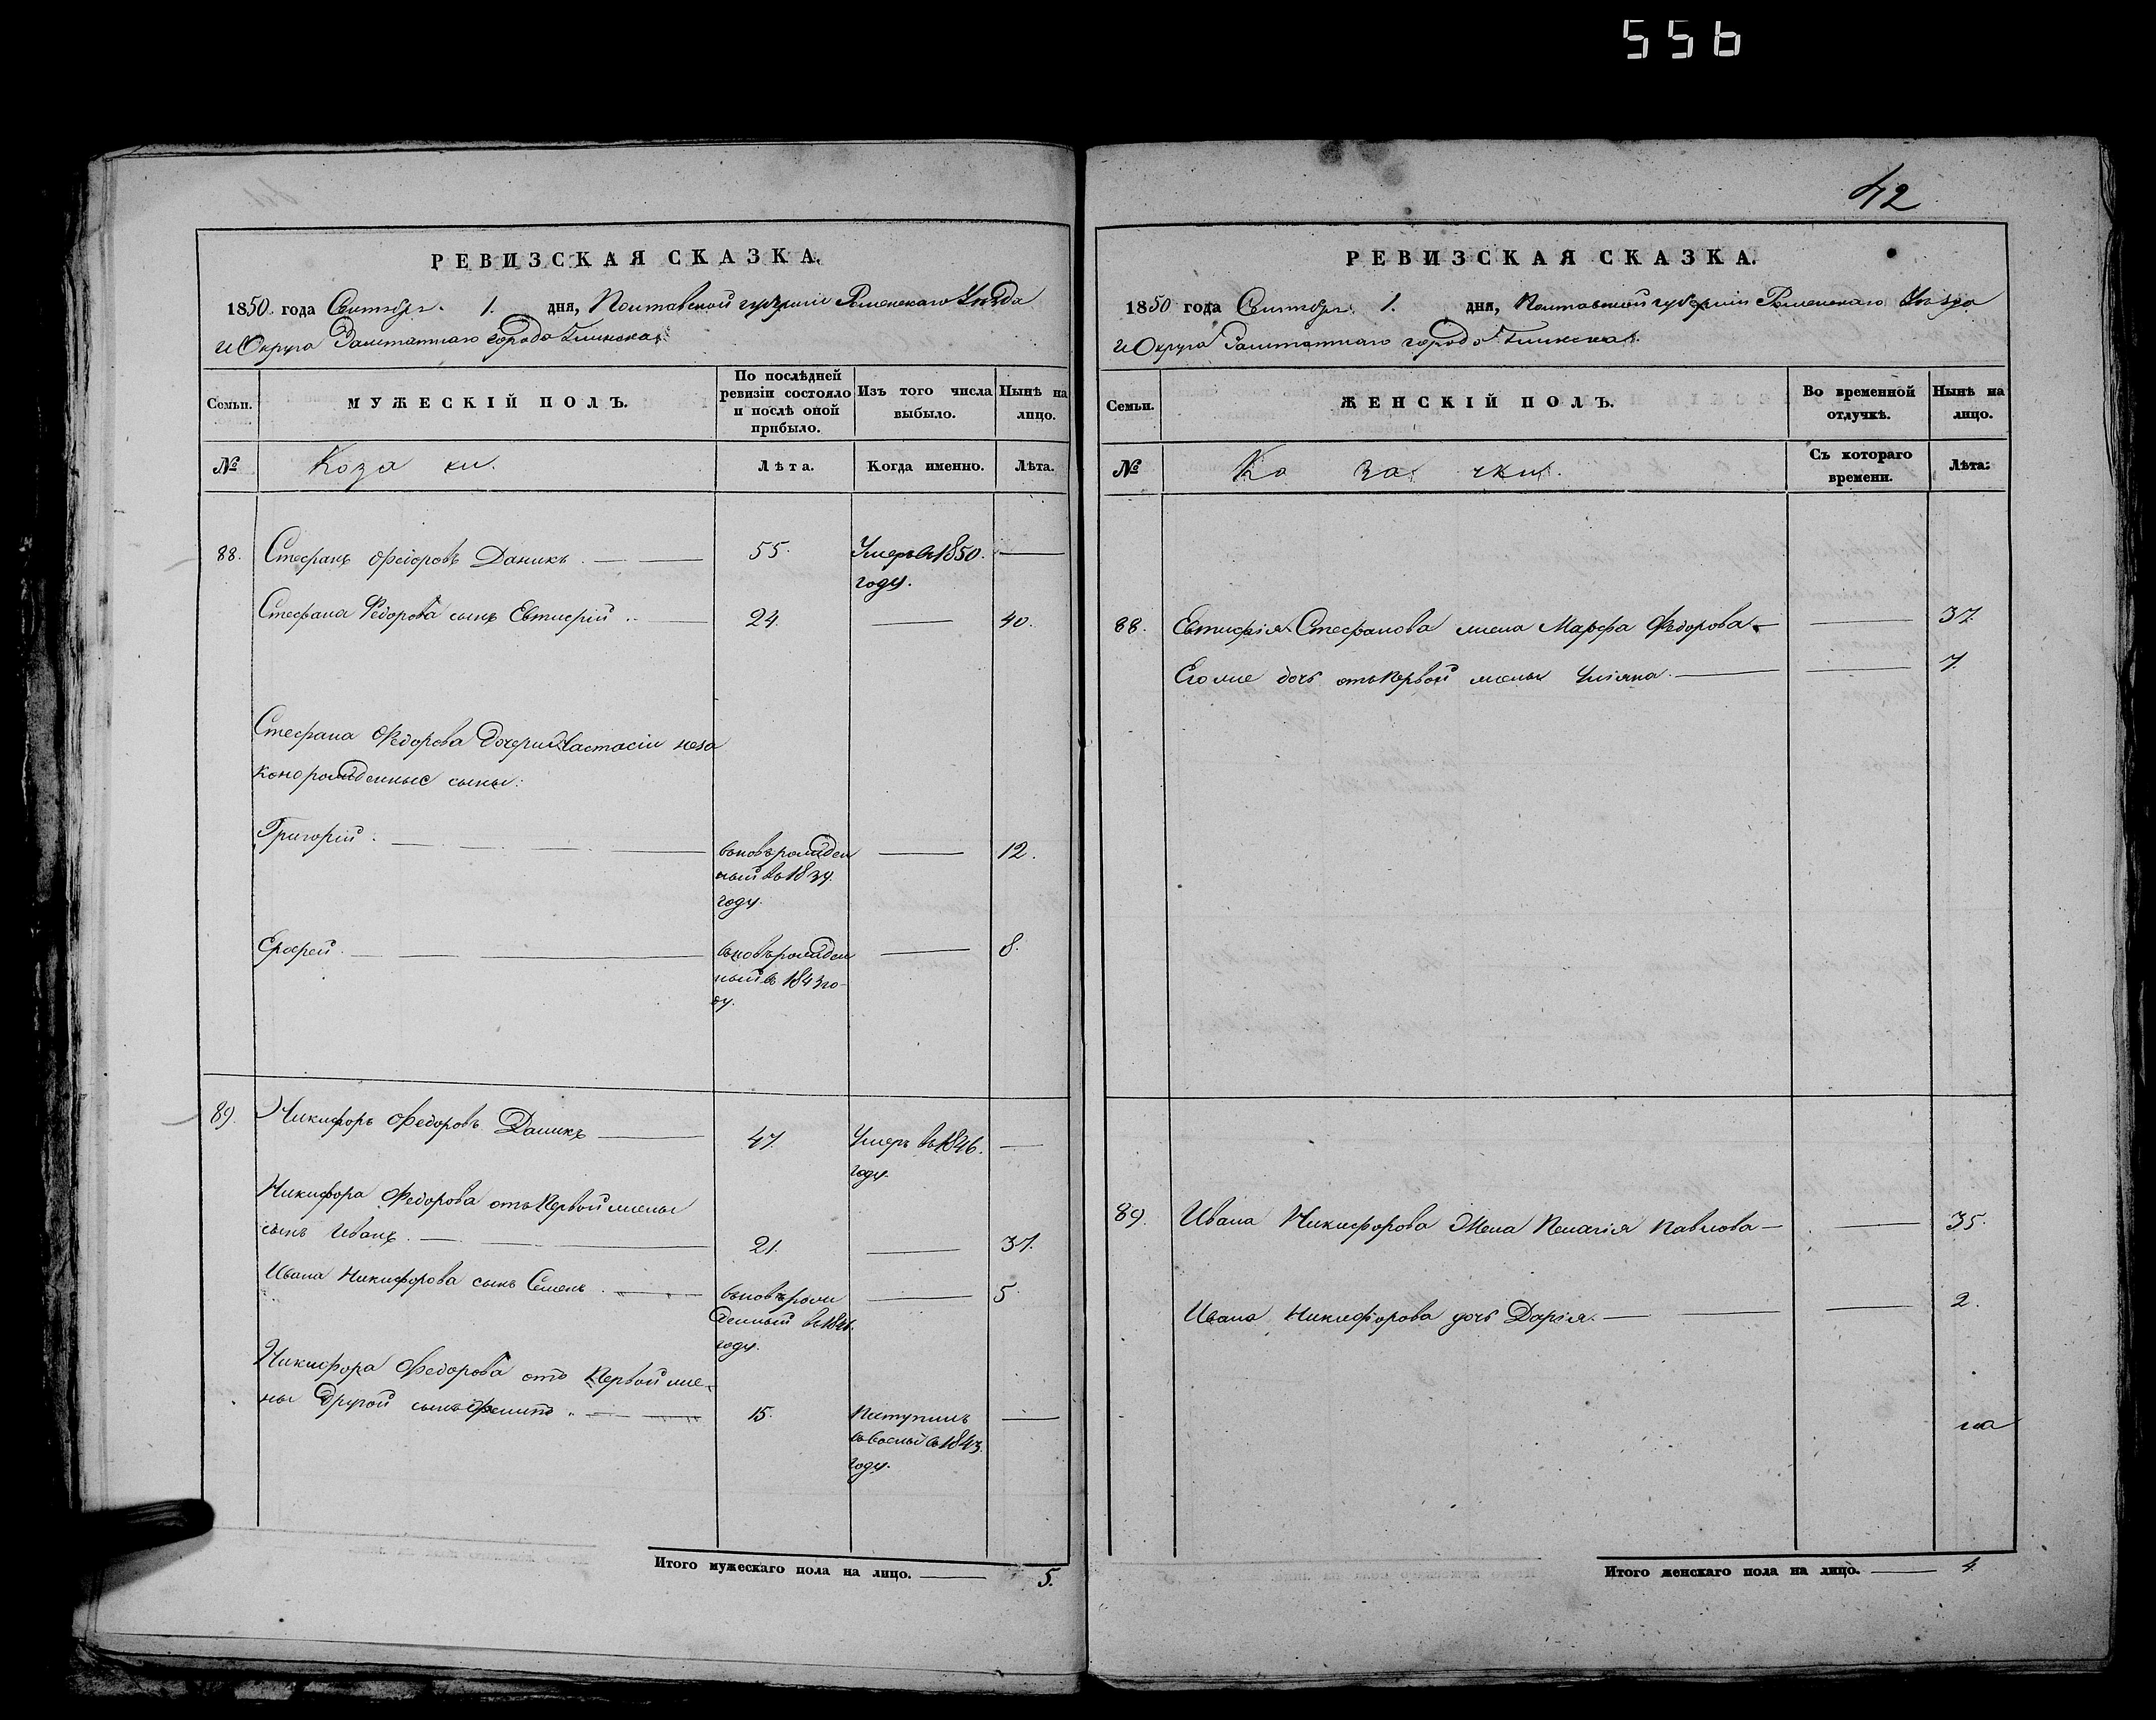 556
РЕВИЗСКАЯ СКАЗКА.
1850. года Сентября. 1. дня, Полтавской губернiи Роменскаго Уѣзда
и Округа Заштатнаго города Глинска:
Семьи.
МУЖЕСКIЙ ПОЛЪ.
По послѣдней
ревизiи состояло
и послѣ оной
прибыло.
Изъ того числа
выбыло.
Нынѣ на
лицо.
№ Коза ки. Лѣта. Когда именно. Лѣта.
88. Стефанъ Федоровъ Даникъ. 55. Умеръ в 1850.
году.
Стефана Федорова сынъ Евтифiй 24. 40.
Стефана Федорова дочери Настасiи неза
конорожденные сыны:
Григорiй. вновь рожден 12.
ный въ 1839.
году.
Ерофей. вновь рожден 8.
ный въ 1843 го-
ду.
89. Никифоръ Федоровъ Даникъ 47. Умеръ въ 1846.
году.
Никифора Федорова отъ первой жены
сынъ Иванъ. 21. 37.
Ивана Никифорова сынъ Семенъ вновь рож 5
денный в
году.
Никифора Федорова отъ первой же-
ны другой сынъ 15. Поступилъ
в 1843.
году.
Итого мужескаго пола на лицо. 5.
42
РЕВИЗСКАЯ СКАЗКА.
1850 года Сентября. 1. дня, Полтавской губернiи Роменскаго Уѣзда
и Округа Заштатнаго города Глинска.
Семьи.
ЖЕНСКIЙ ПОЛЪ.
Во временной
отлучкѣ.
Нынѣ на
лицо.
№ Ка за чки.
Съ котораго
времени.
Лѣта:
88. Евтифiя Стефанова жена Марфа Федорова 37.
Его же дочь отъ первой жены Улiяна. 7.
89. Ивана Никифорова жена Пелагiя Павлова 35.
Ивана Никифорова дочь Дарiя. 2.
на
Итого женскаго пола на лицо. 4.